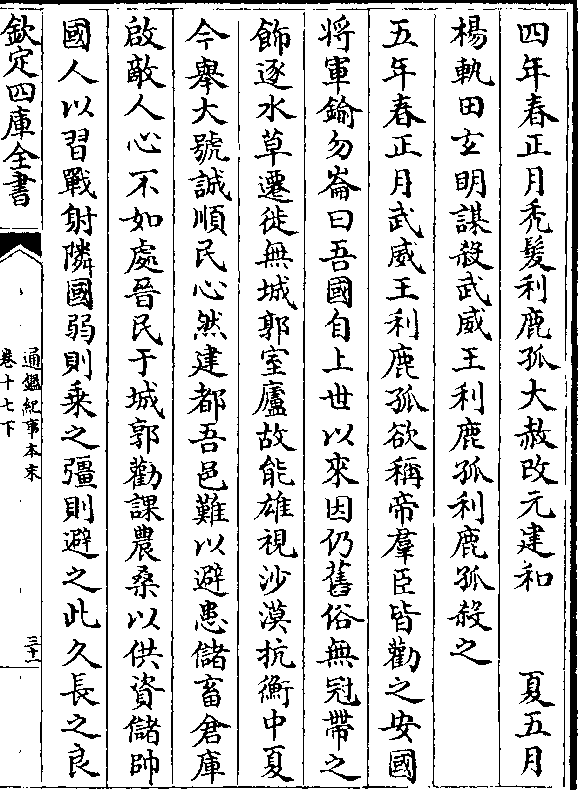 四年春正月禿髮利鹿孤大赦改元建和　夏五月
楊軌田玄明謀殺武威王利鹿孤利鹿孤殺之
五年春正月武威王利鹿孤欲稱帝羣臣皆勸之安國
将軍鍮勿崙曰吾國自上世以來因仍舊俗無冠帶之
飾逐水草遷徙無城郭室廬故能雄視沙漠抗衡中夏
今舉大號誠順民心然建都吾邑難以避患儲畜倉庫
啟敵人心不如處晉民于城郭勸課農桑以供資儲帥
國人以習戰射隣國弱則乗之彊則避之此久長之良
欽定四庫全書
通鑑紀事本末
卷十七下
三十一